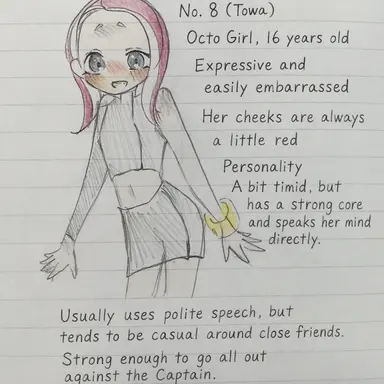 No. 8 (Towa)
Octo Girl, 16 years old
Expressive and
easily embarrassed
Her cheeks are always
a little red
Personality
A bit timid, but
has a strong core
and speaks her mind
directly.
Usually uses polite speech, but
tends to be casual around close friends.
Strong enough to go all out
against the Captain.